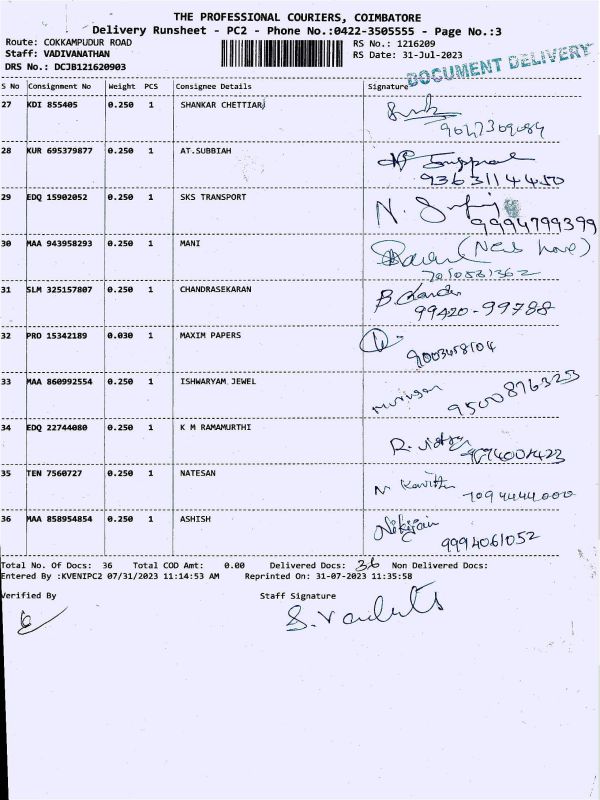 THE PROFESSIONAL COURIERS, COIMBATORE
Delivery Runsheet - PC2 - Phone No.:0422-3505555 - Page No.:3
Route: COKKAMPUDUR ROAD RS No.: 1216209
Staff: VADIVANATHAN RS Date: 31-Jul-2023
DRS No.: DCJB121620903
DOCUMENT DELIVERY
S No Consignment No Weight PCS Consignee Details Signature
27 KDI 855405 0.250 1 SHANKAR CHETTIAR
28 KUR 695379877 0.250 1 AT.SUBBIAH
9363114450
29 EDQ 15902052 0.250 1 SKS TRANSPORT
9994799399
30 MAA 943958293 0.250 1 MANI
31 SLM 325157807 0.250 1 CHANDRASEKARAN
B.Chander
99420-99788
32 PRO 15342189 0.030 1 MAXIM PAPERS
9003458104
33 MAA 860992554 0.250 1 ISHWARYAM JEWEL
Murugan
9500876323
34 EDQ 22744080 0.250 1 K M RAMAMURTHI
35 TEN 7560727 0.250 1 NATESAN
N Kavitha
7094444000
36 MAA 858954854 0.250 1 ASHISH
9994061052
Total No. Of Docs: 36 Total COD Amt: 0.00 Delivered Docs: 36 Non Delivered Docs:
Entered By :KVENIPC2 07/31/2023 11:14:53 AM Reprinted On: 31-07-2023 11:35:58
Verified By Staff Signature